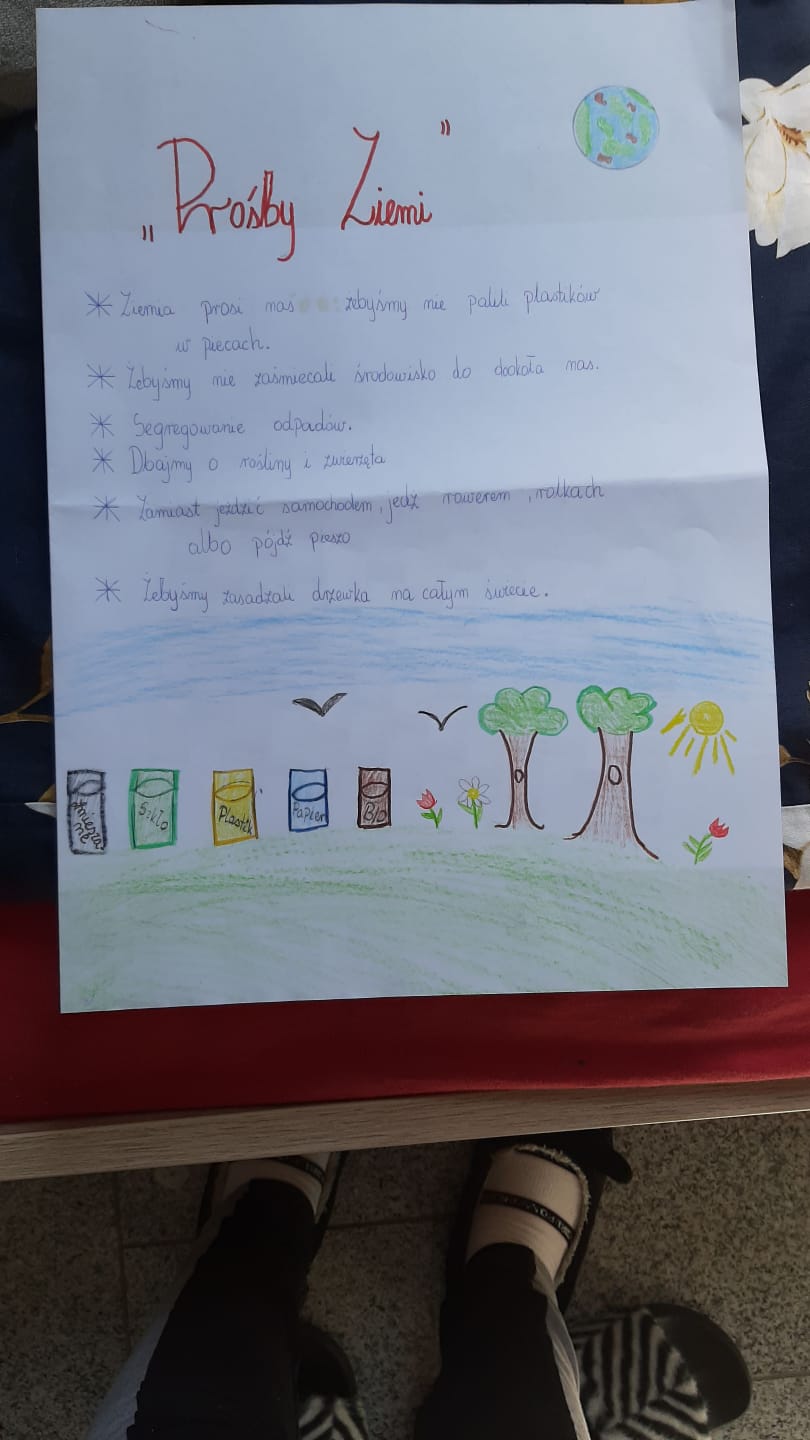 „Prośby Ziemi”
Ziemia prosi nas żebyśmy nie palili plastików
w piecach.
Żebyśmy nie zaśmiecali środowisko do dookoła nas.
Segregowanie odpadów.
Dbajmy o rośliny i zwierzęta
Zamiast jeździć samochodem, jedź rowerem, rolkach
albo pójdź pieszo
Żebyśmy zasadzali drzewka na całym świecie.
Zmieszane
Szkło
Plastik
Papier
Bio